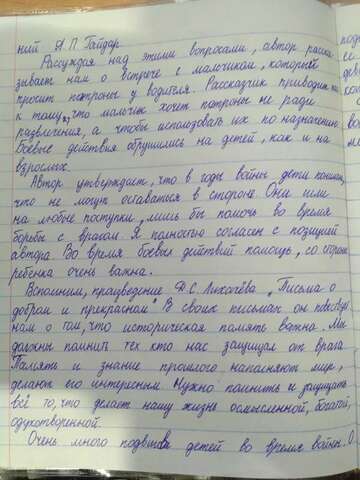 ний А.П Гайдар.
Рассуждая над этими вопросами, автор расска
зывает нам о встрече с мальчиком, который
просит патроны у водителя. Рассказчик приводит нас
к тому, что мальчик хочет патроны не ради
развлечения, а чтобы использовать их по назначению.
Боевые действия обрушились на детей, как и на
взрослых.
Автор утверждает, что в годы войны дети понимали,
что не могут оставаться в стороне. Они шли
на любые поступки, лишь бы помочь во время
борьбы с врагом. Я полностью согласен с позицией
автора. Во время боевых действий помощь, со стороны
ребенка очень важна.
Вспомним, произведение Д.С. Лихачёва „Письма о
добром и прекрасном" В своих письмах он
нам о том, что историческая память важна. Мы
должны помнить тех кто нас защищал от врага.
Память и знание прошлого наполняют мир,
делают его интересным Нужно помнить и защищать
всё то, что делает нашу жизнь осмысленной, богатой,
одухотворенной.
Очень много подвигов детей во время войны. О